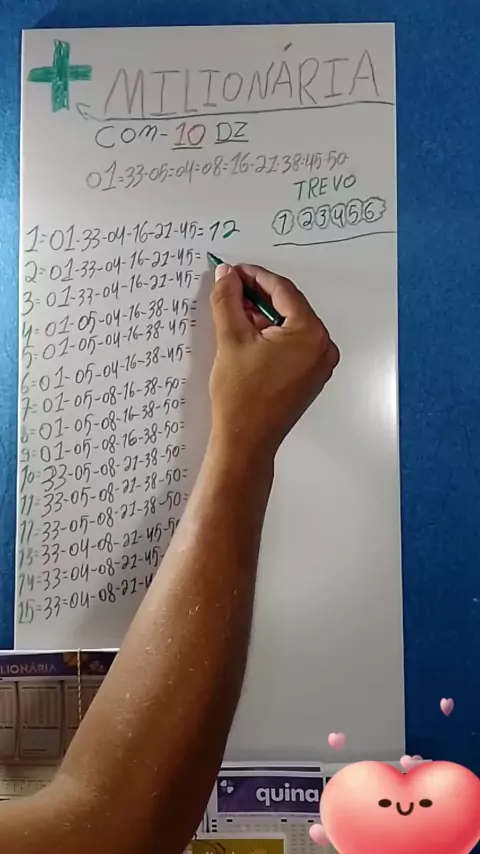 MILIONÁRIA
COM-10 DZ
01=33-05=04=08=16-21-38-45-50
TREVO
1 2 3 4 5 6
1=01-33-04-16-21-45=12
2=01-33-04-16-21-45=
3=01-33-04-16-21-45=
4=01-05-04-16-38-45=
5=01-05-04-16-38-45=
6=01-05-04-16-38-45=
7=01-05-08-16-38-50=
8=01-05-08-16-38-50=
9=01-05-08-16-38-50=
10=33-05-08-21-38-50=
11=33-05-08-21-38-50=
11=33-05-08-21-38-50=
13=33-04-08-21-45-5
14=33=04-08-21-45-
15=33=04-08-21-4
LIONÁRIA
quina